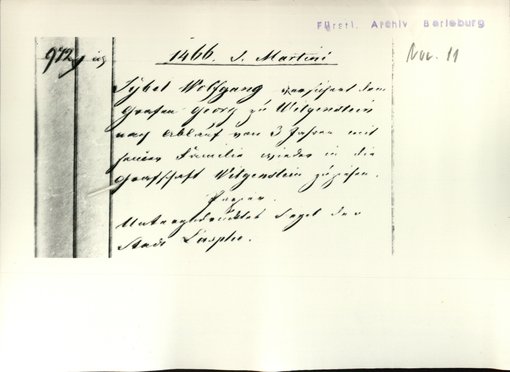 Fürstl. Archiv Berleburg
Nov. 11
972
1466. S. Martini
Sybel Wolfgang versichert dem
Grafen Georg zu Witgenstein
nach Ablauf von 3 Jahren mit
seiner Familie wieder in die
Grafschaft Witgenstein zu ziehen.
Papier.
Untergedrücktes Segel der
Stadt Laasphe.